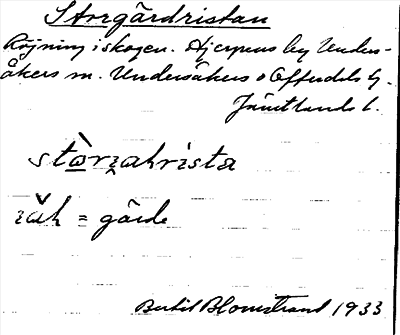 Storgårdristan
Röjning i skogen. Hjerpens by Unders-
åkers sn. Undersåkers o Offerdals tg.
Jämtlands l.
stòrʒahrista
ʒăh = gärde
Bertil Blomstrand 1933